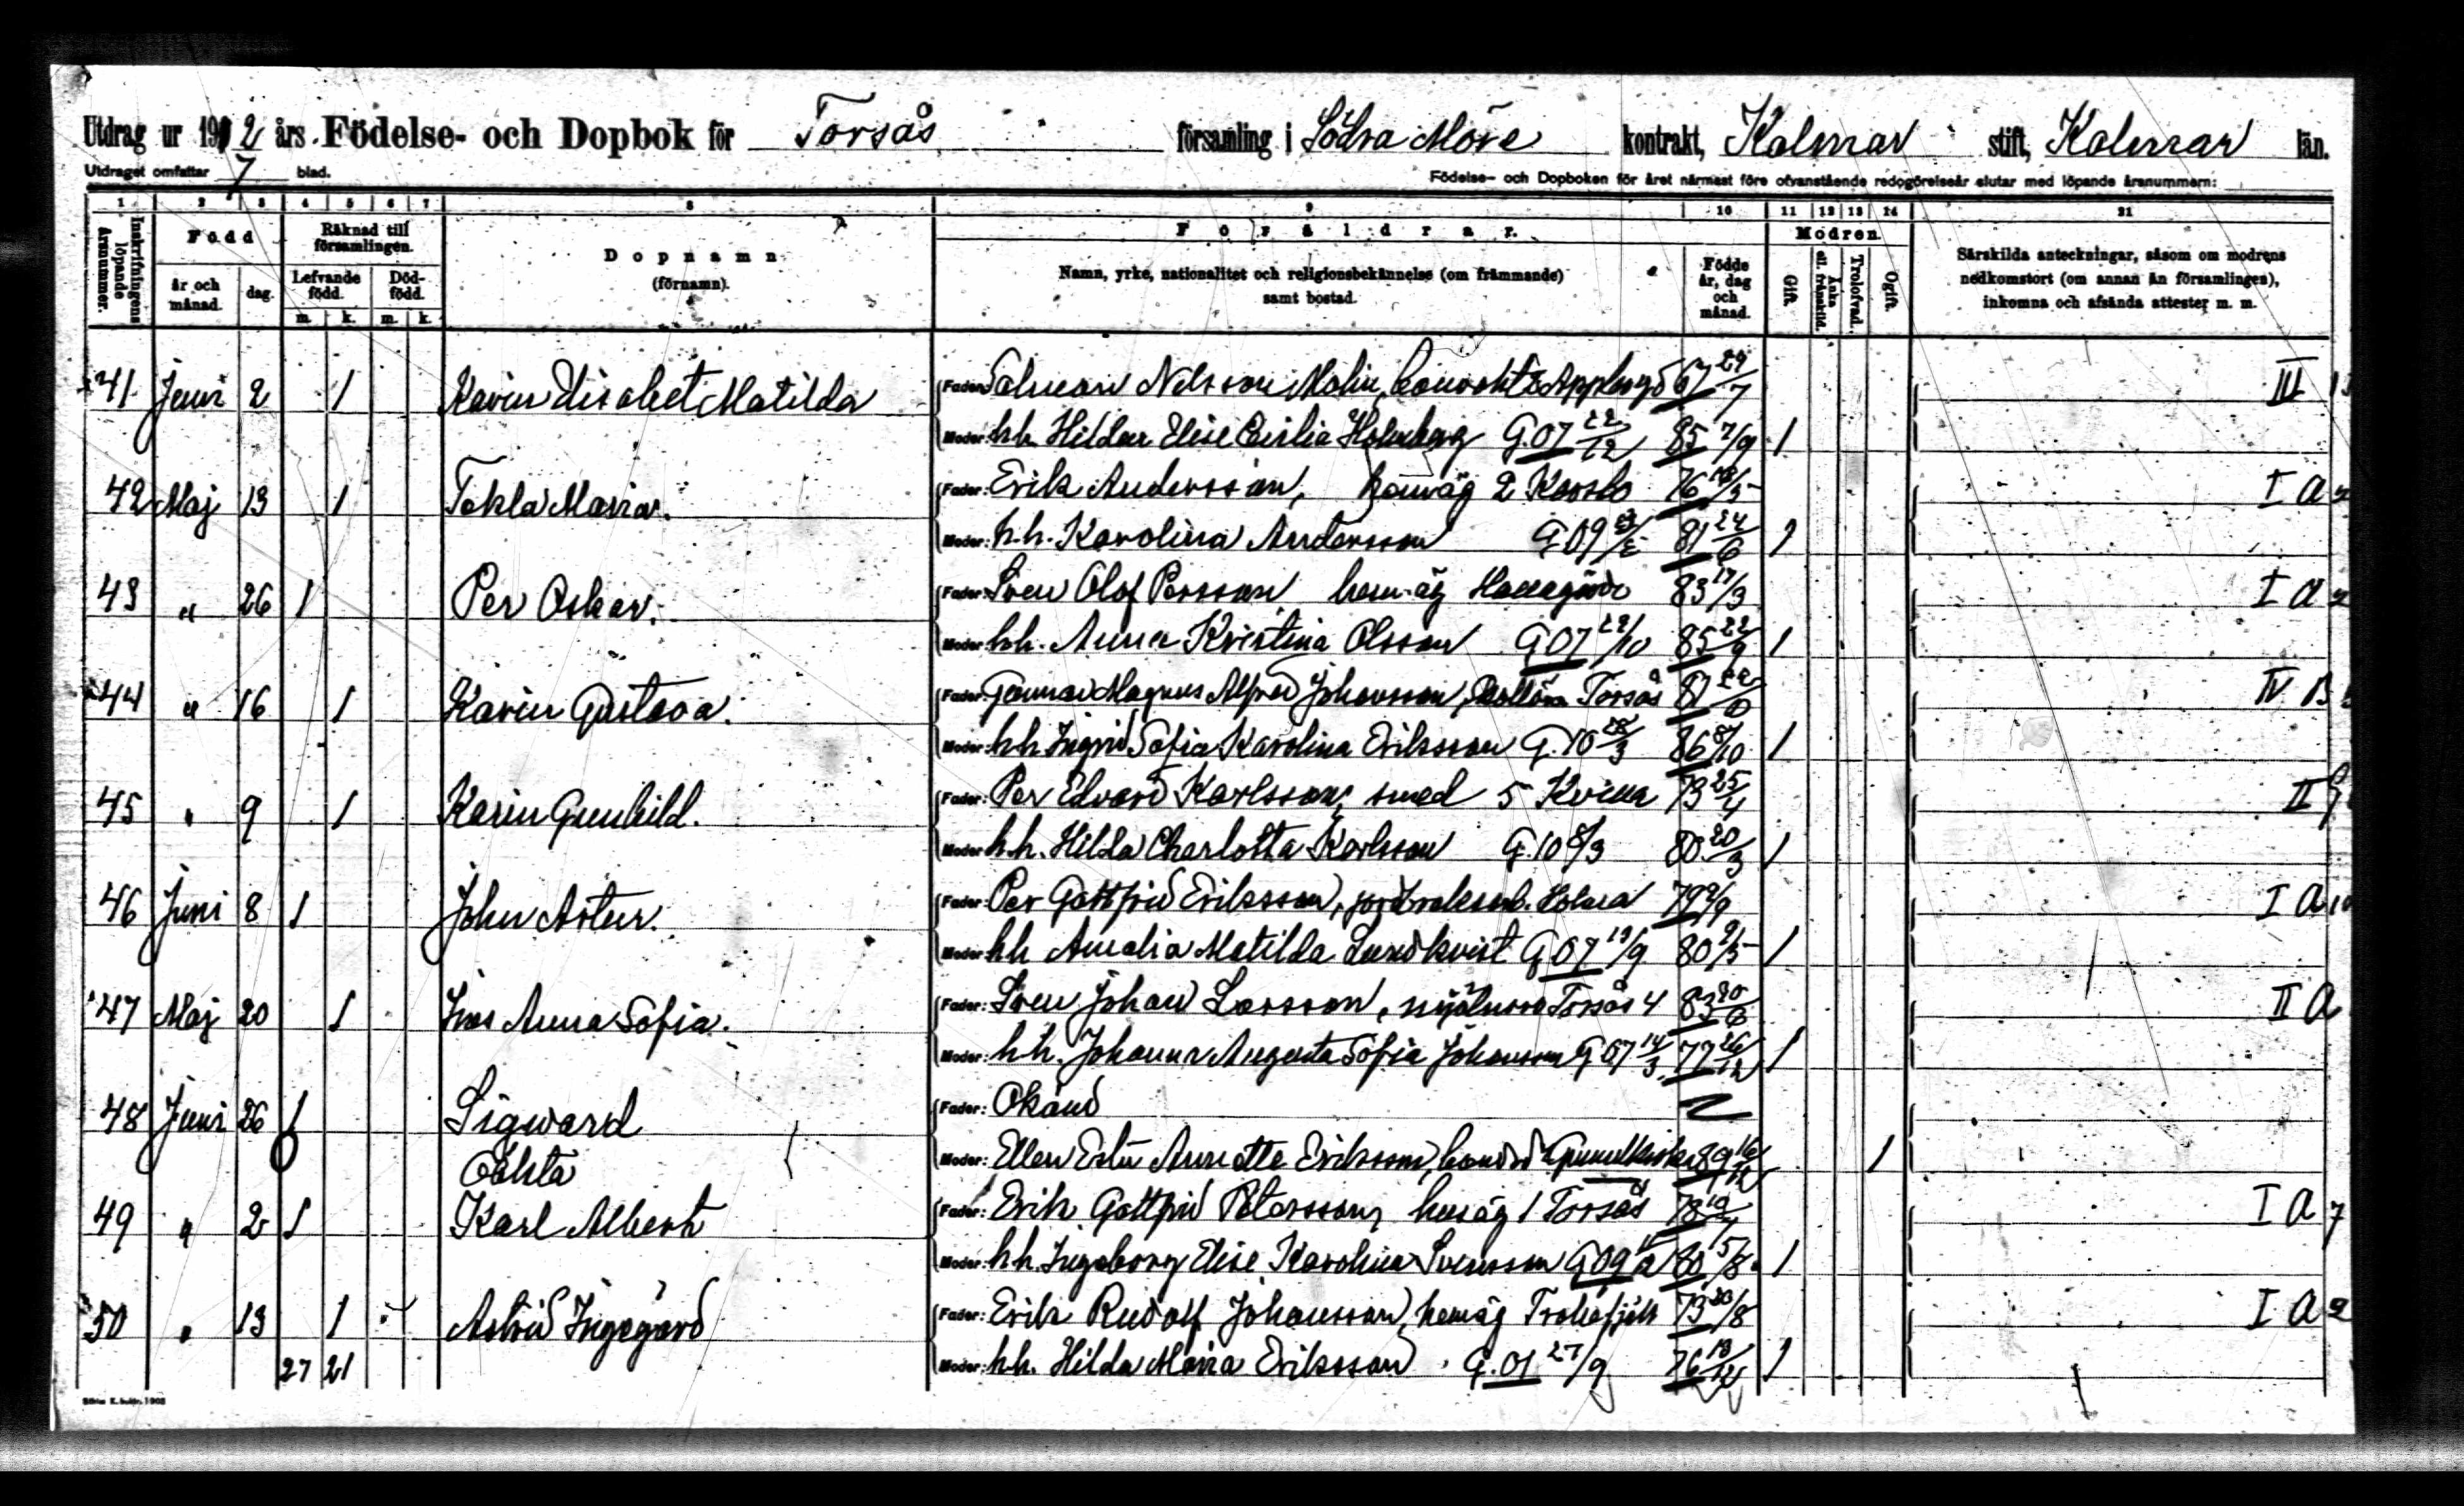 Utdrag ur 1912 års Födelse- och Dopbok för Torsås församling i Södra Möre kontrakt, Kalmar stift, Kalmar län.
Utdraget omfattar 7 blad. Födelse- och Dopboken för året närmast före ofvanstående redogörelseår slutar med löpande årsnummern:
1 2 3 4 5 6 7 8 9 10 11 12 13 14 21
Inskrifningens löpande årsnummer.
Född
år och månad.
dag.
Räknad till församlingen.
Lefvande född.
Död-född.
m. k. m. k.
Dopnamn
(förnamn).
Föräldrar.
Namn, yrke, nationalitet och religionsbekännelse (om främmande)
samt bostad.
Födde år, dag och månad.
Modren.
Gift.
Änka el. frånskild.
Trolofvad.
Ogift.
Särskilda anteckningar, såsom om modrens
nedkomstort (om annan än församlingen),
inkomna och afsända attester m. m.
41 Juni 2 1 Karin Elisabet Matilda Fader: Salmon Nelsson Malin, 67 29/7 III
Moder: hh. Hilda Elise Cecilia Holmberg G. 07 22/12 85 7/9 1
42 Maj 13 1 Tekla Maria. Fader: Erik Andersson, hemäg 2 Karsbo 76 I a
Moder: h.h. Karolina Andersson G 09 81 24/6 1
43 " 26 1 Per Oskar. Fader: Sven Olof Persson hem.äg 83 17/3 I a
Moder: hh. Anna Kristina Olsson G 07 29/10 85 22/9 1
44 " 16 1 Karin Gustava. Fader: Gunnar Magnus Alfred Johansson, Torsås 81 IV B
Moder: hh Ingrid Sofia Karolina Eriksson G. 10 28/3 86 8/10 1
45 " 9 1 Karin Gunhild. Fader: Per Edvard Karlsson, smed 5 Kvilla 73 25/4 II
Moder: h.h. Hilda Charlotta Karlsson G. 10 6/3 80 20/3 1
46 Juni 8 1 John Artur. Fader: Per Gottfrid Eriksson, 79 I a 10
Moder: hh Amalia Matilda Lundkvist G 07 19/9 80 9/5 1
47 Maj 20 1 Anna Sofia. Fader: Sven Johan Larsson, Torsås 4 83 30/6 II a
Moder: h.h. Johanna Augusta Sofia Johansson G 07 14/3 77 26/12 1
48 Juni 26 1 Sigvard Fader: Okänd
Oäkta Moder: Ellen Ester Annette Eriksson, 89 16/12 1
49 " 2 1 Karl Albert Fader: Erik Gottfrid Petersson, husäg 1 Torsås 78 I a 7
Moder: hh. Ingeborg Elise Karolina Svensson G 09 80 15/8 1
50 " 13 1 Astrid Ingegärd Fader: Erik Rudolf Johansson, hemäg 73 20/8 I a 2
27 21 Moder: hh. Hilda Maria Eriksson G. 01 27/9 76 13/12 1